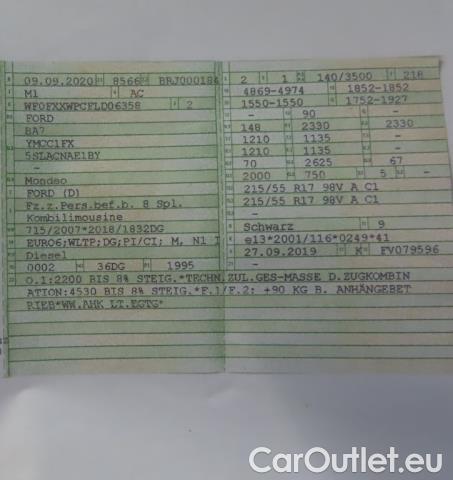 09.09.2020 8566 BRJ000184
M1 AC
WF0FXXWPCFLD06358 2
FORD
BA7
YMCC1FX
5SLACNAE1BY
-
Mondeo
FORD (D)
Fz.z.Pers.bef.b. 8 Spl.
Kombilimousine
715/2007*2018/1832DG
EURO6;WLTP;DG;PI/CI; M, N1 I
Diesel
0002 36DG 1995
2 1 140/3500 218
4869-4974 1852-1852
1550-1550 1752-1927
- 90 - -
148 2330 2330
1210 1135 -
1210 1135 -
70 2625 67
2000 750 5 -
215/55 R17 98V A C1
215/55 R17 98V A C1
-
Schwarz 9
e13*2001/116*0249*41
27.09.2019 K FV079596
- -
O.1:2200 BIS 8% STEIG.*TECHN.ZUL.GES-MASSE D.ZUGKOMBIN
ATION:4530 BIS 8% STEIG.*F.1/F.2: +90 KG B. ANHÄNGEBET
RIEB*WW.AHK LT.EGTG*
CarOutlet.eu